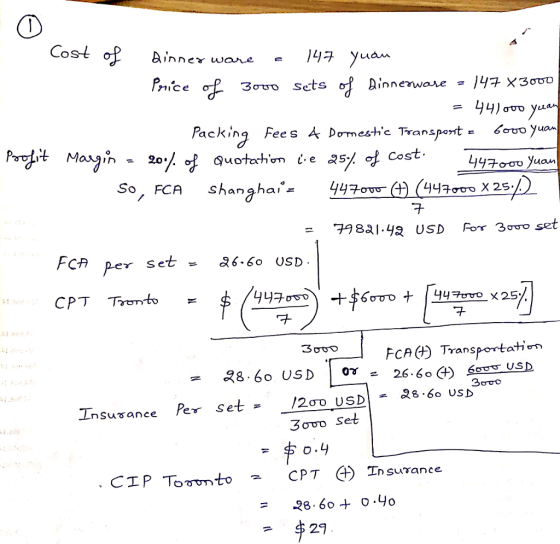 ①
Cost of Dinnerware = 147 yuan
Price of 3000 sets of Dinnerware = 147 X 3000
= 441000 yuan
Packing Fees & Domestic Transport = 6000 yuan
447000 yuan
Profit Margin = 20% of Quotation i.e 25% of Cost.
So, FCA Shanghai = 447000 (+) (447000 X 25%)
7
= 79821.42 USD For 3000 set
FCA per set = 26.60 USD.
CPT Tronto = $ (447000/7) + $6000 + [447000/7 x 25%]
3000
= 28.60 USD
or
FCA (+) Transportation
= 26.60 (+) 6000 USD/3000
= 28.60 USD
Insurance Per set = 1200 USD
3000 set
= $0.4
. CIP Toronto = CPT (+) Insurance
= 28.60 + 0.40
= $29.